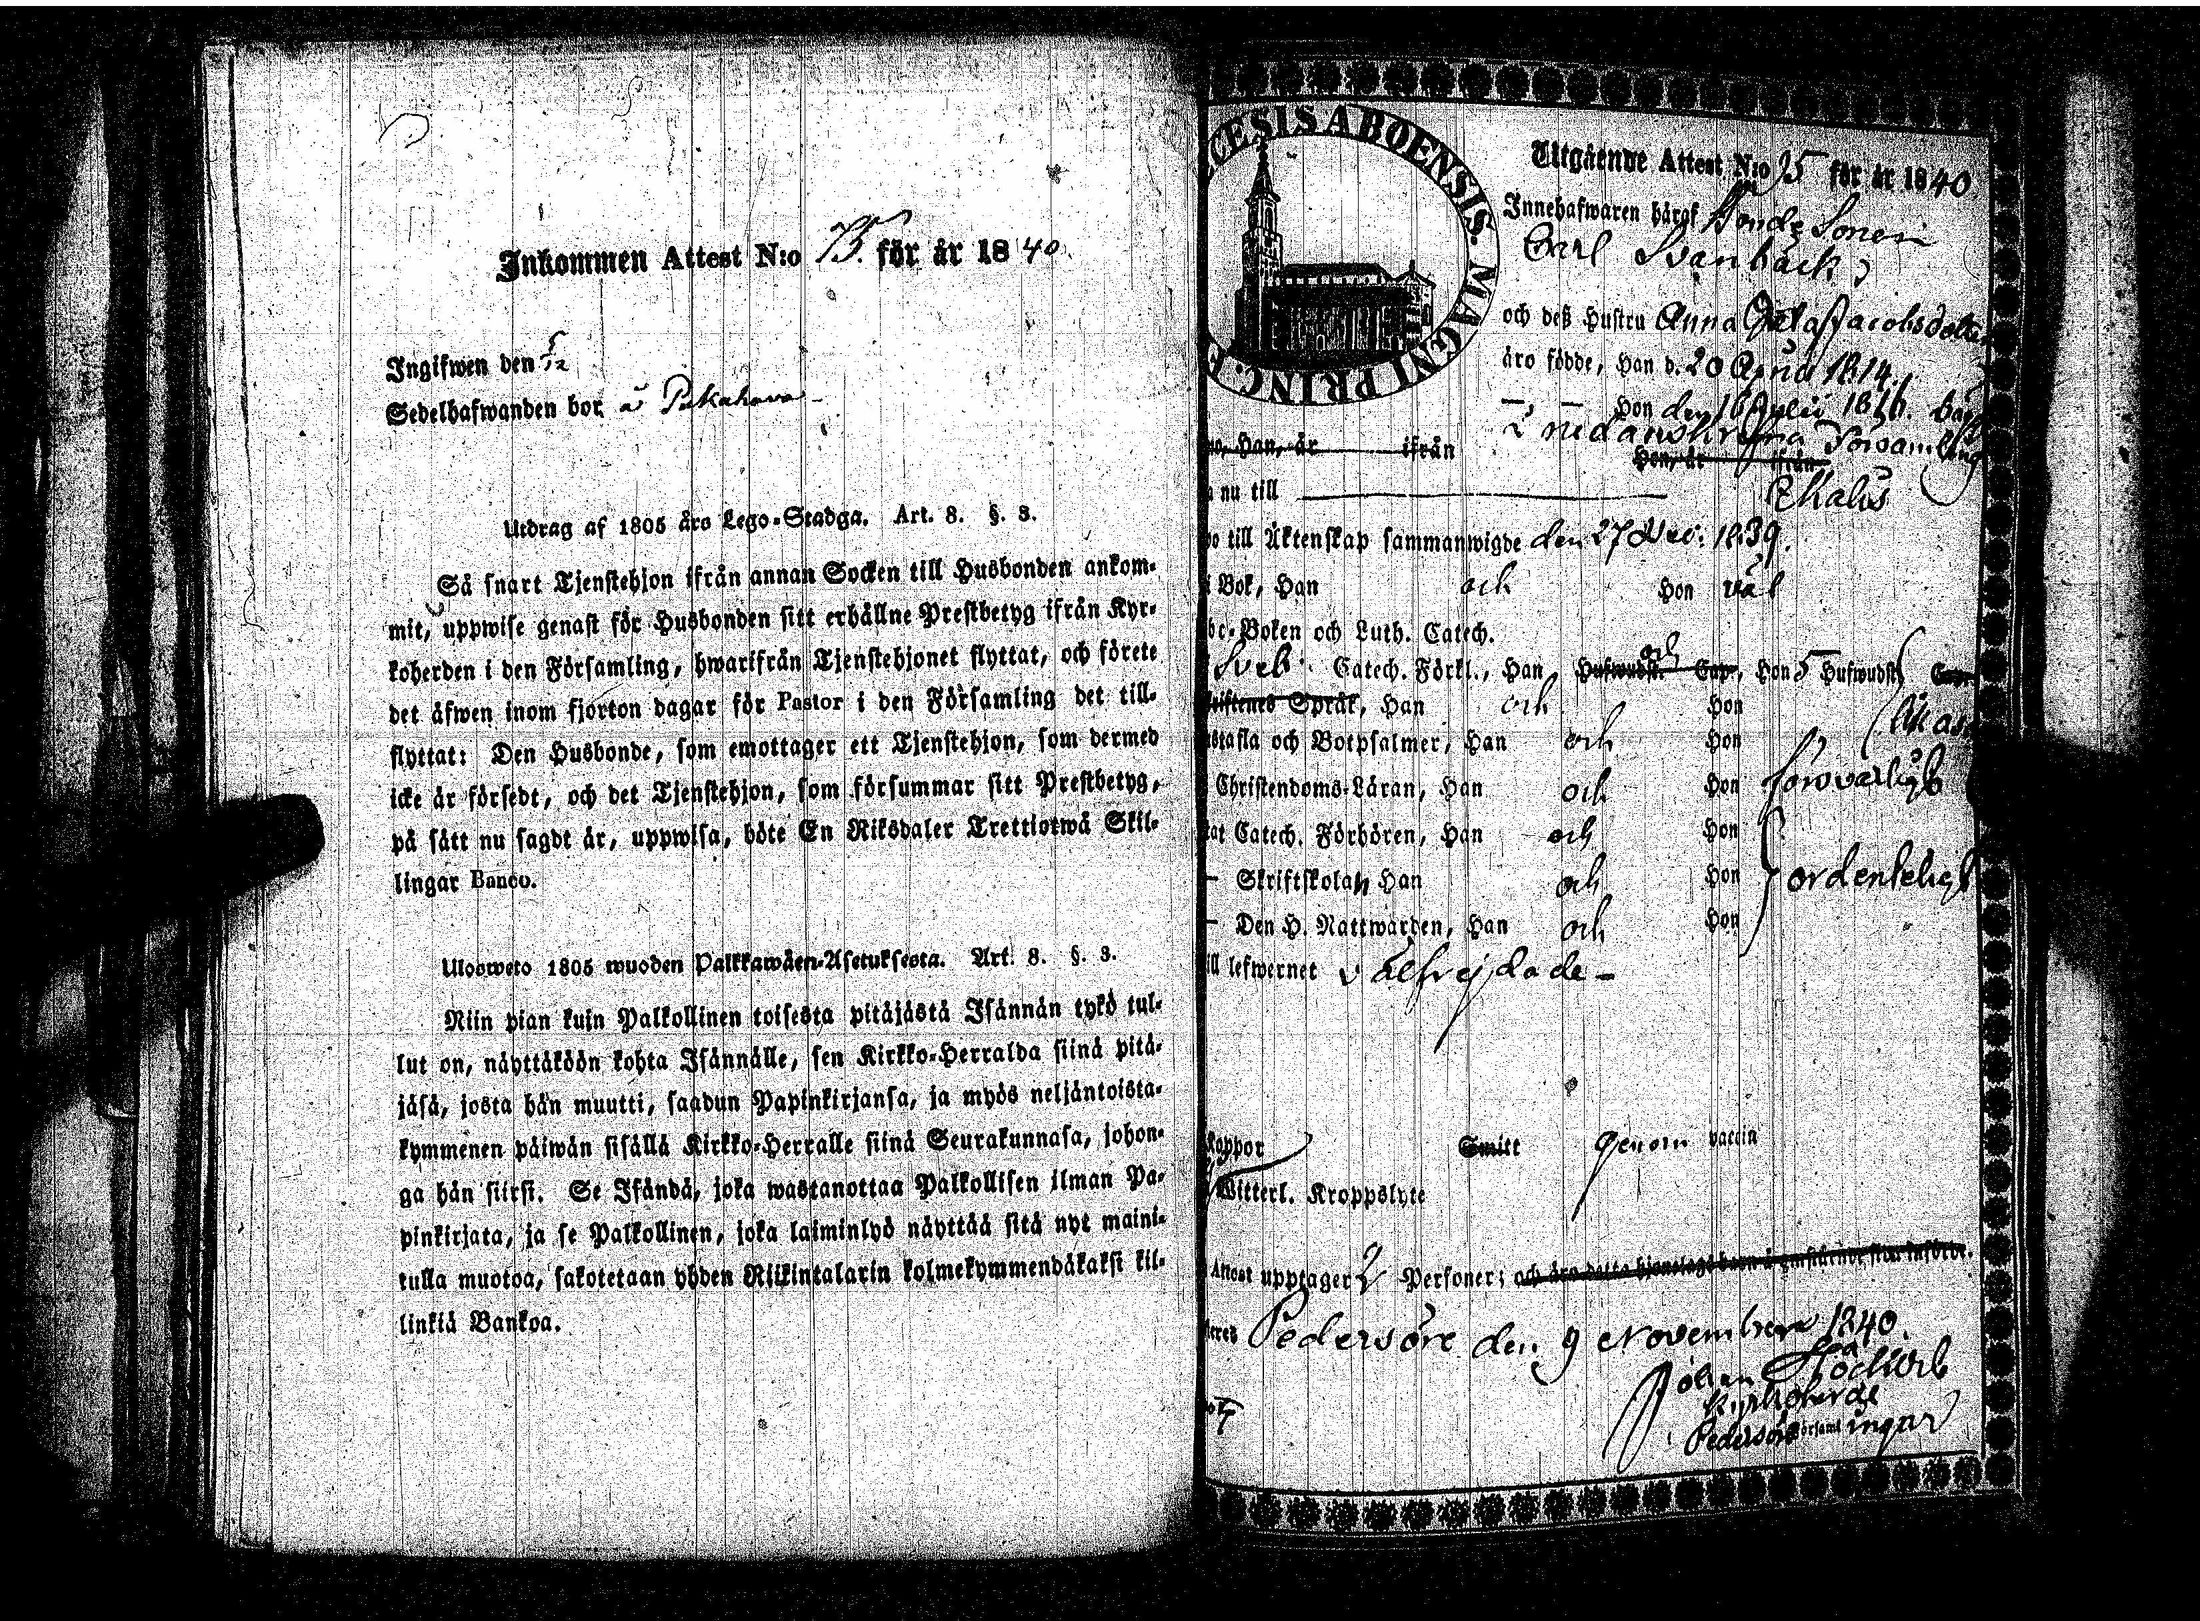 Inkommen Attest N:o 73. för år 1840.
Ingifwen den 5/12
Sedelhafwanden bor å
Utdrag af 1805 års Lego-Stadga. Art. 8. §. 3.
Så snart Tjenstehjon ifrån annan Socken till Husbonden ankom-
mit, uppwise genast för Husbonden sitt erhållne Prestbetyg ifrån Kyr-
koherden i den Församling, hwarifrån Tjenstehjonet flyttat, och förete
det äfwen inom fjorton dagar för Pastor i den Församling det till-
flyttat: Den Husbonde, som emottager ett Tjenstehjon, som dermed
icke är försedt, och det Tjenstehjon, som försummar sitt Prestbetyg,
på sätt nu sagdt är, uppwisa, böte En Riksdaler Trettiotwå Skil-
lingar Banco.
Ulosweto 1805 wuoden Palkkawäen-Asetuksesta. Art. 8. §. 3.
Niin pian kuin Palkollinen toisesta pitäjästä Isännän tykö tul-
lut on, näyttäköön kohta Isännälle, sen Kirkko-Herralda siinä pitä-
jäsä, josta hän muutti, saadun Papinkirjansa, ja myös neljäntoista-
kymmenen päiwän sisällä Kirkko-Herralle siinä Seurakunnasa, johon-
ga hän siirsi. Se Isändä, joka wastanottaa Palkollisen ilman Pa-
pinkirjata, ja se Palkollinen, joka laiminlyö näyttää sitä nyt maini-
tulla muotoa, sakotetaan yhden Riikintalarin kolmekymmendäkaksi kil-
linkiä Bankoa.
CESIS ABOENSIS. MAGNI PRINC. F
Utgående Attest N:o 95 för år 1840
Innehafwaren häraf Bonde Sonen
Carl Svanbäck,
och deß Hustru Anna Greta Jacobsdotter
äro födde, Han d. 20 April 1814.
Hon den 16 Julii 1816. båda
i nedanskrefna Församling
Han, är ifrån Hon, är ifrån
nu till
till Äktenskap sammanwigde den 27 Dec: 1839.
i Bok, Han och Hon väl
Boken och Luth. Catech.
Sveb. Catech. Förkl., Han och Hufwudst. Cap., Hon 5 Hufwudst. Cap.
Skriftenes Språk, Han och Hon likaså
stafla och Botpsalmer, Han och Hon
Christendoms-Läran, Han och Hon försvarligt
Catech. Förhören, Han och Hon
Skriftskolan Han och Hon ordenteligt
Den H. Nattwarden, Han och Hon
lefwernet välfrejdade
koppor Smitt genom vaccin
Witterl. Kroppslyte
Attest upptager 2 Personer; och äro detta hjonelags barn å omstående sida införde.
Pedersöre den 9 November 1840.
Johan
Kyrkoherde
Pedersöre Församlingar